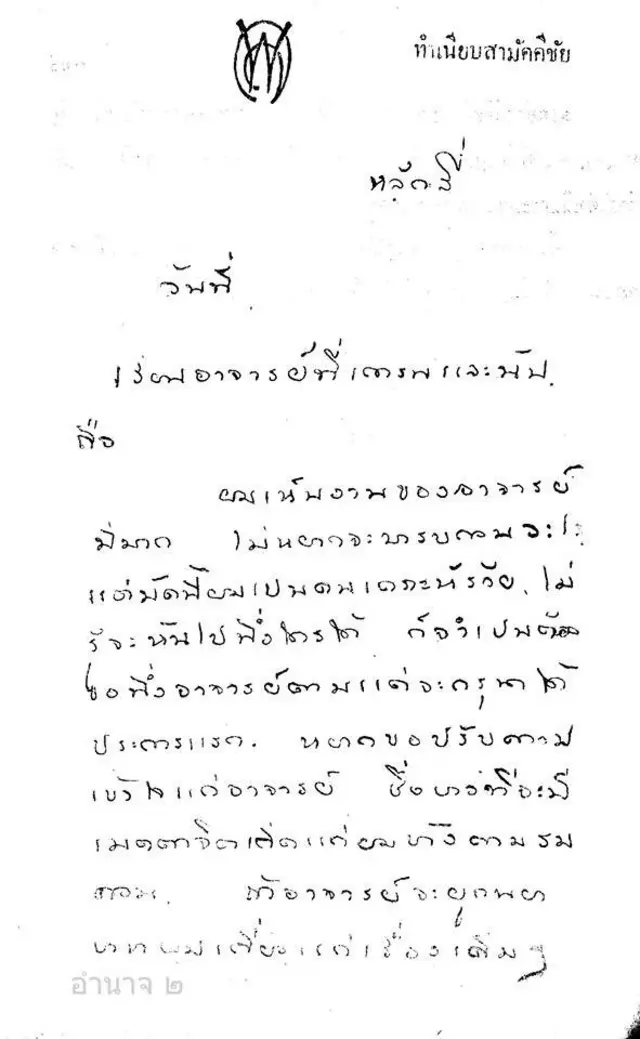 ทำเนียบสามัคคีชัย
หลักสี่
วันที่
เรียนอาจารย์ที่เคารพและนับ
ถือ
ผมเห็นงานของอาจารย์
มีมาก ไม่หยากจะรบกวนอะไร
แต่บัดนี้ผมเปนคนเคราะห์ร้าย, ไม่
รู้จะหันไปพึ่งใครได้ ก็จำเปนต้อง
ขอพึ่งอาจารย์ตามแต่จะกรุนาได้
ประการแรก. หยากขอปรับความ
เข้าใจแก่อาจารย์ ซึ่งบางทีจะมี
เมตตาจิตเกิดแก่ผมบ้างตามสม
ควน. ถ้าอาจารย์จะผูกพยา
บาทผมเพียงแต่เรื่องเดิมๆ
อำนาจ ๒